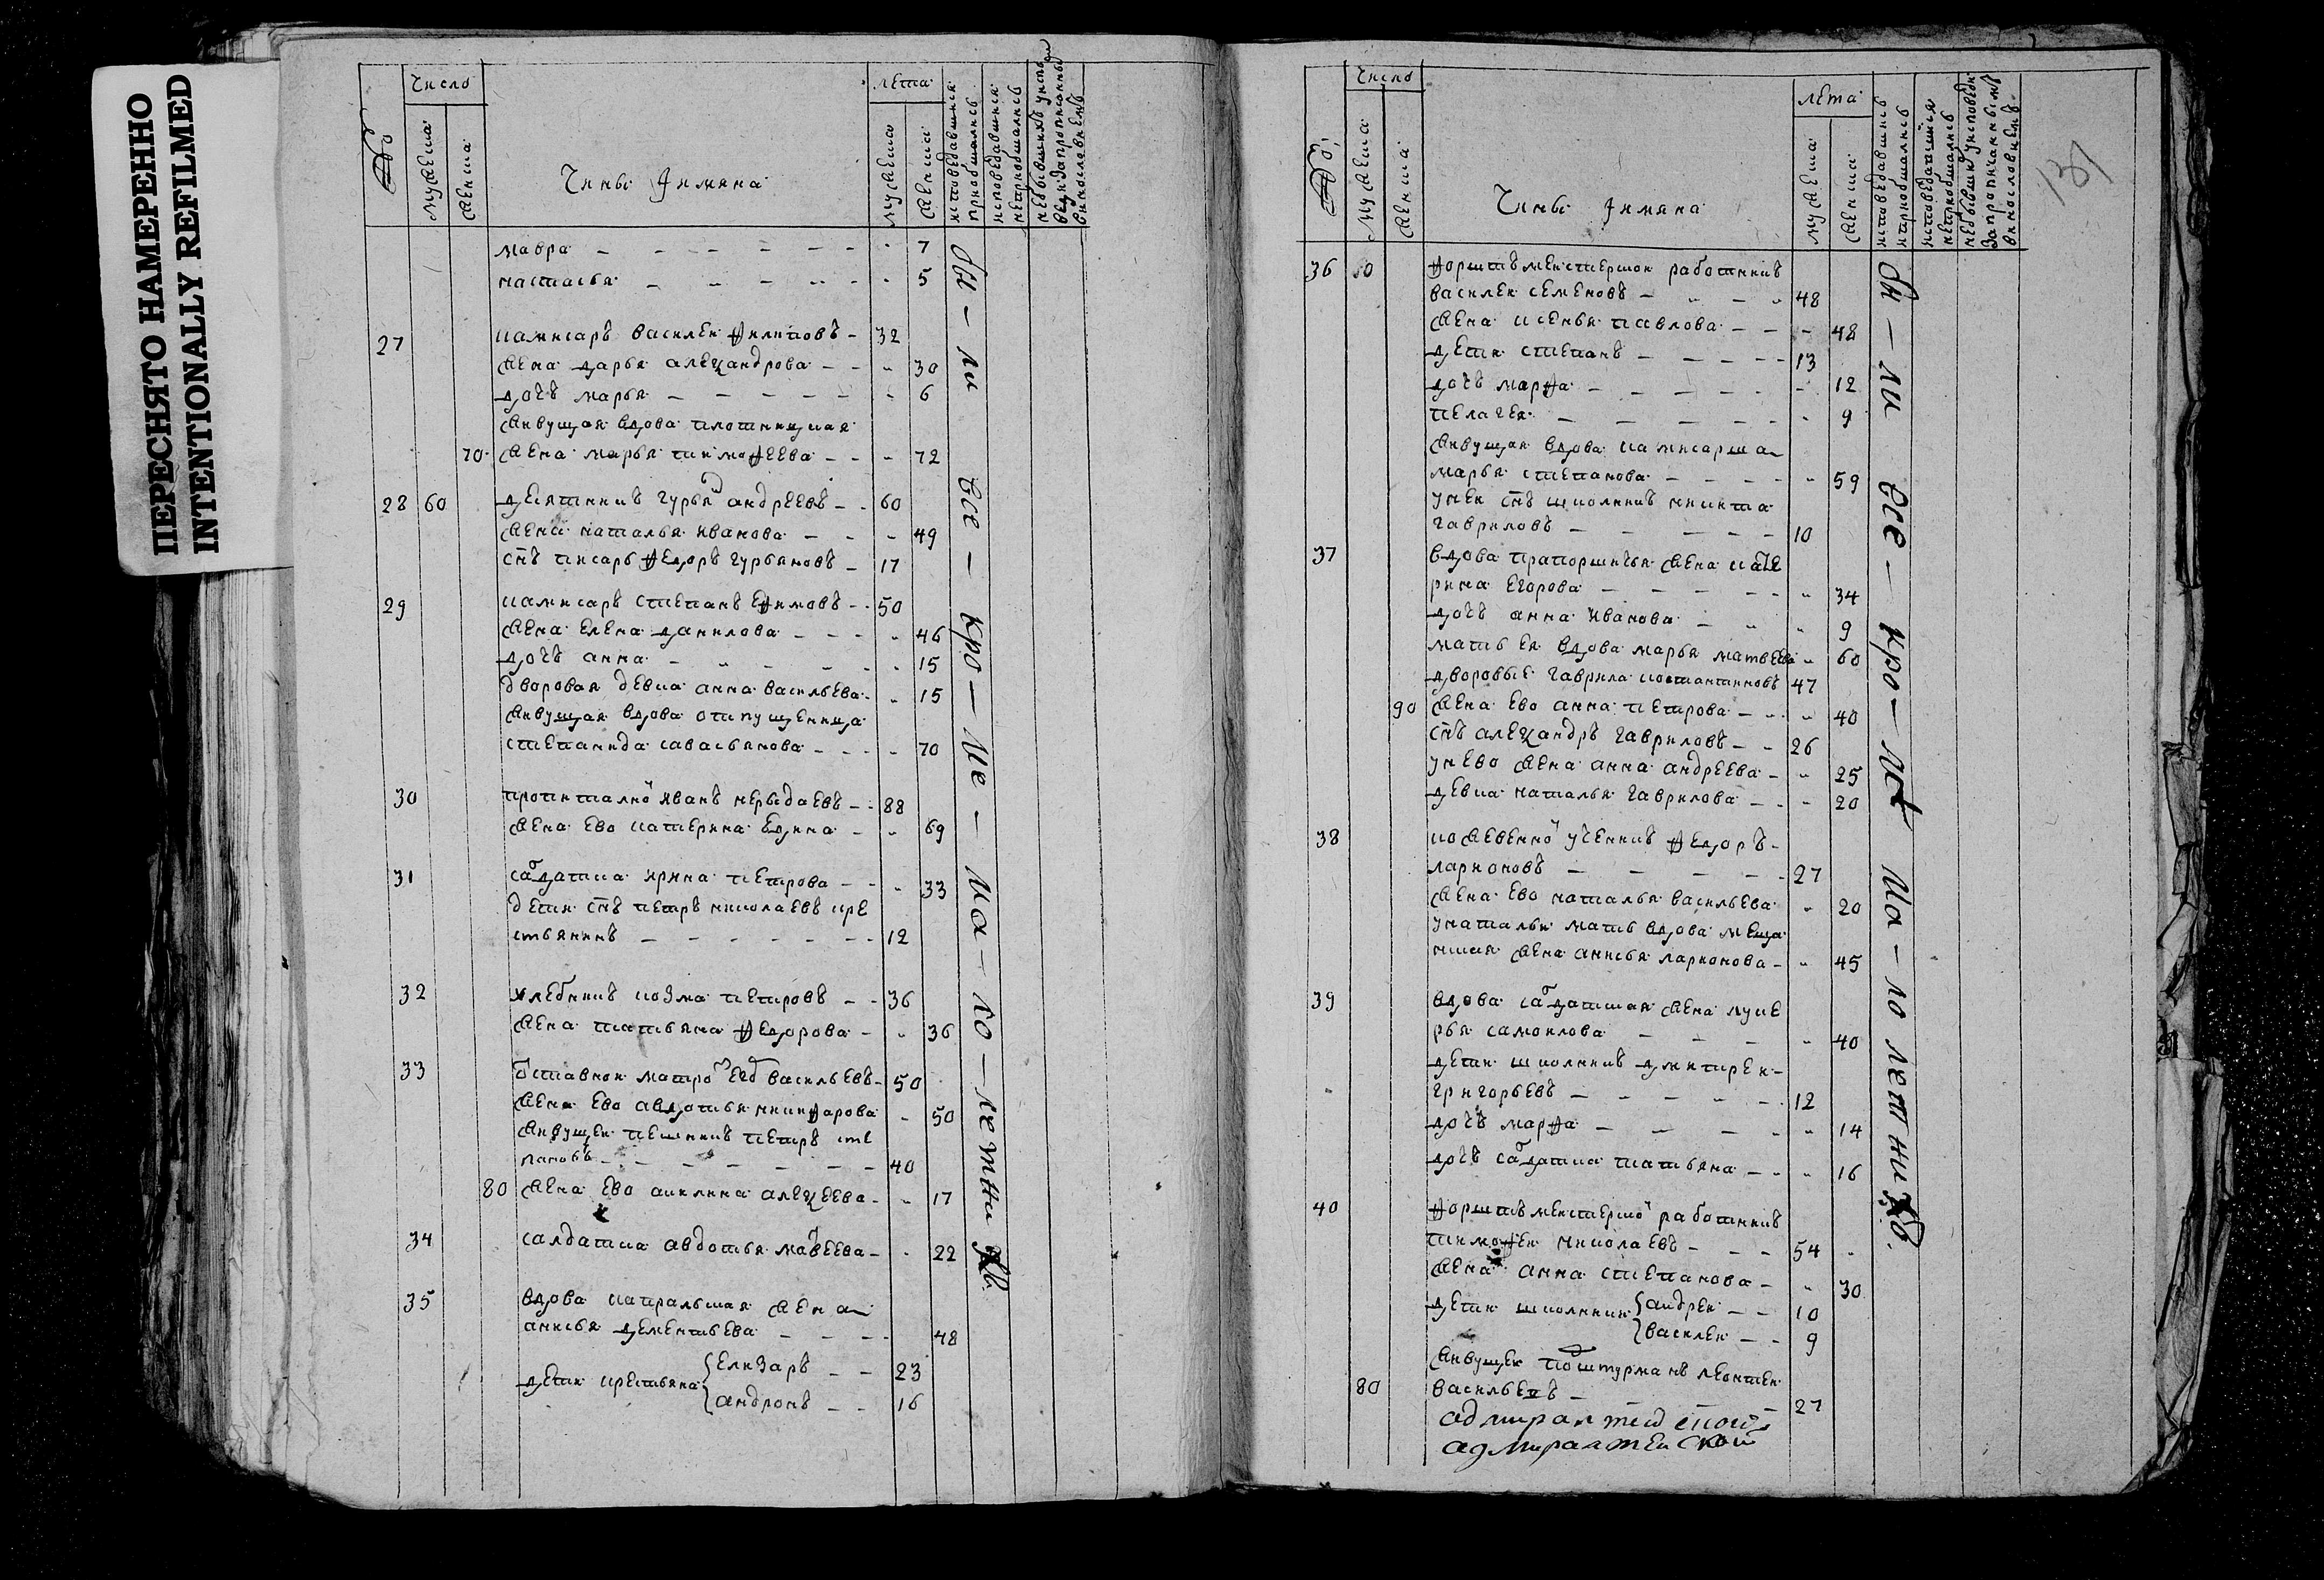 ПЕРЕСНЯТО НАМЕРЕННО
INTENTIONALLY REFILMED
число
лета
мужеска
женска
Чины Имяна
мужеска
женска
исповедавшися
приобщались
исповедавшися
неприобщались
мавра 7
настасья 5
27 камисаръ василей филиповъ 32
жена дарья александрова 30
дочь марья 6
живущая вдова плотницкая
70 жена марья тимофеева 72
28 60 десятникъ гурьянъ андреевъ 60
жена наталья иванова 49
снъ писарь федоръ гурьяновъ 17
29 камисаръ степанъ ефимовъ 50
жена елена данилова 46
дочь анна 15
дворовая девка анна васильева 15
живущая вдова отпущенница
степанида савасьянова 70
30 пропиталной иванъ 88
жена ево катерина 69
31 салдатка ирина петрова 33
дети снъ петръ николаевъ кре
стьянинъ 12
32 хлебникъ козма петровъ 36
жена татьяна федорова 36
33 отставной матрозъ васильевъ 50
жена ево авдотья никифорова 50
живущей печникъ петръ сте
пановъ 40
80 жена ево акилина алексеева 17
34 салдатка авдотья матвеева 22
35 вдова капральская жена
анисья дементьева 48
дети крестьяна елизаръ 23
андронъ 16
Вы - ли все - кро - ме - ма - ло - летных
число
лета
мужеска
женска
Чины Имяна
мужеска
женска
исповедавшись
приобщались
исповедавшися
неприобщались
137
36 форштъмейстерской работникъ
василей семеновъ 48
жена ксенья павлова 48
дети степанъ 13
дочь марфа 12
пелагея 9
живущая вдова камисарша
марья степанова 59
у ней снъ школникъ никита
гавриловъ 10
37 вдова прапорщичья жена кате
рина егорова 34
дочь анна иванова 9
мать ея вдова марья матвеева 60
дворовые гаврила костантиновъ 47
90 жена ево анна петрова 40
снъ александръ гавриловъ 26
у нево жена анна андреева 25
девка наталья гаврилова 20
38 кожевенной ученикъ федоръ
ларионовъ 27
жена ево наталья васильева 20
у натальи мать вдова меща
нская жена анисья ларионова 45
39 вдова салдатская жена луке
рья самойлова 40
дети школникъ дмитрей
григорьевъ 12
дочь марфа 14
дочь салдатка татьяна 16
40 форштъмейстерской работникъ
тимофей николаевъ 54
жена анна степанова 30
дети школники андрей 10
василей 9
живущей подштурманъ леонтей
80 васильевъ 27
адмиралтейской
адмиралтейской
Вы - ли все - кро - ме ма - ло летних